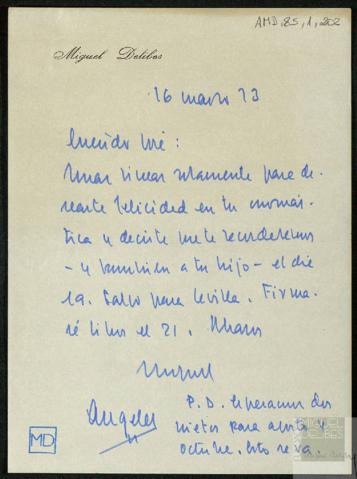 AMD, 85, 1, 202
Miguel Delibes
16 marzo 73
Querido José:
Unas líneas solamente para de-
searte felicidad en tu onomás-
tica y decirte que te recordaremos
- y también a tu hijo - el día
19. Salgo para Sevilla. Firma-
ré libros el 21. Abrazos
Miguel
Angeles
P.D. Esperamos dos
nietos para agosto y
octubre. Esto se va.
MD